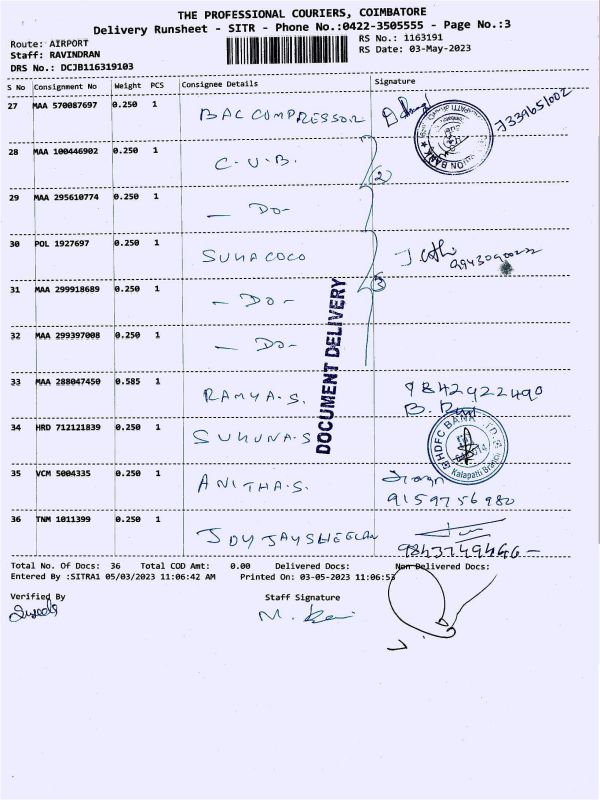 THE PROFESSIONAL COURIERS, COIMBATORE
Delivery Runsheet - SITR - Phone No.:0422-3505555 - Page No.:3
Route: AIRPORT RS No.: 1163191
Staff: RAVINDRAN RS Date: 03-May-2023
DRS No.: DCJB116319103
S No Consignment No Weight PCS Consignee Details Signature
27 MAA 570087697 0.250 1 BAC COMPRESSOR 7339651002
28 MAA 100446902 0.250 1 C.U.B. 2
29 MAA 295610774 0.250 1 - DO -
30 POL 1927697 0.250 1 SUNACOCO
31 MAA 299918689 0.250 1 - DO - 3
32 MAA 299397008 0.250 1 - DO -
DOCUMENT DELIVERY
33 MAA 288047450 0.585 1 RAMYA.S. 9842922490
34 HRD 712121839 0.250 1 SUKUNA.S HDFC BANK LTD. Kalapatti Branch
35 VCM 5004335 0.250 1 ANITHA.S. 9159756980
36 TNM 1011399 0.250 1 JOY JAYSHEELAN
Total No. Of Docs: 36 Total COD Amt: 0.00 Delivered Docs: Non Delivered Docs:
Entered By :SITRA1 05/03/2023 11:06:42 AM Printed On: 03-05-2023 11:06:53
Verified By Staff Signature